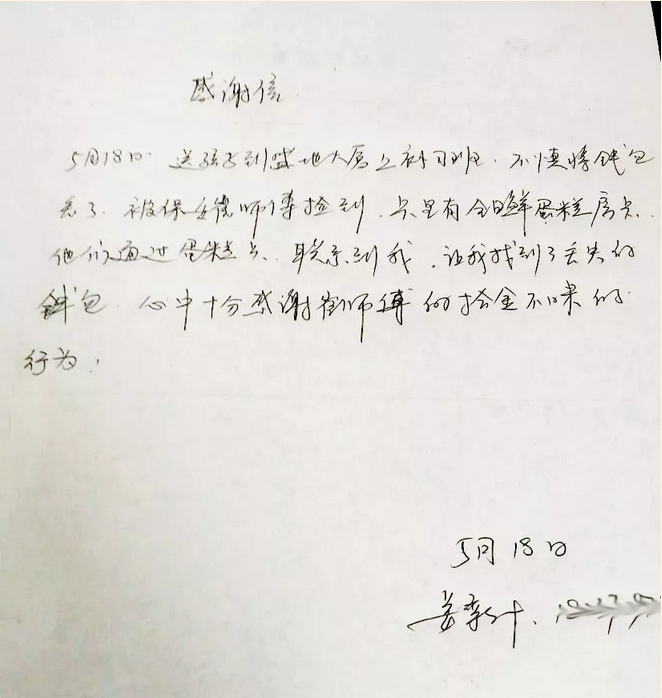 感谢信
5月18日 送孩子到盛地大厦上补习班. 不慎将钱包
丢了. 被保安崔师傅捡到. 只里有今日鲜蛋糕房卡.
他们通过蛋糕卡. 联系到我. 让我找到了丢失的
钱包. 心中十分感谢崔师傅的拾金不昧的
行为.
5月18日
姜